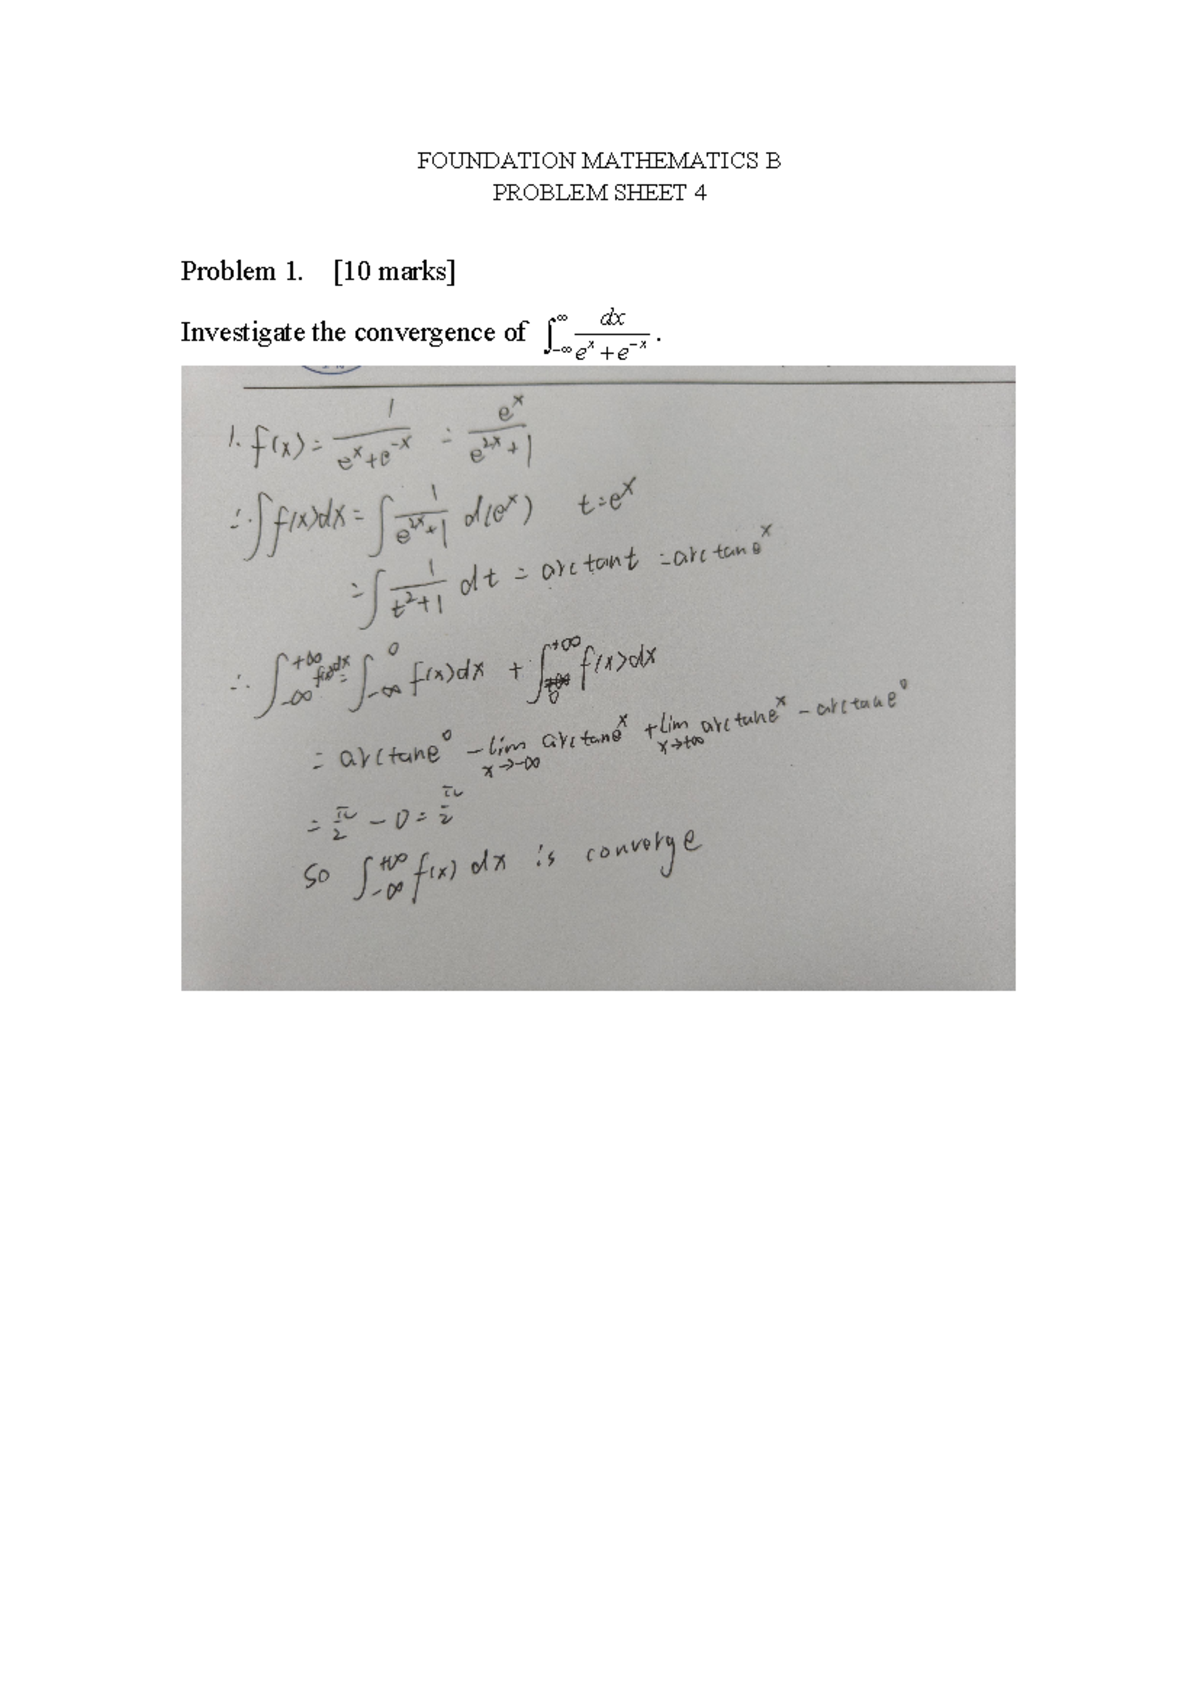 FOUNDATION MATHEMATICS B
PROBLEM SHEET 4
Problem 1. [10 marks]
Investigate the convergence of ∫_{-∞}^{∞} dx/(e^x + e^{-x}) .
1. f(x) = 1/(e^x + e^{-x}) = e^x/(e^{2x} + 1)
∴ ∫ f(x)dx = ∫ 1/(e^{2x} + 1) d(e^x)   t = e^x
= ∫ 1/(t^2 + 1) dt = arctan t = arctan e^x
∴ ∫_{-∞}^{+∞} f(x)dx = ∫_{-∞}^{0} f(x)dx + ∫_{0}^{+∞} f(x)dx
= arctan e^0 - lim_{x→-∞} arctan e^x + lim_{x→+∞} arctan e^x - arctan e^0
= π/2 - 0 = π/2
So ∫_{-∞}^{+∞} f(x) dx is converge